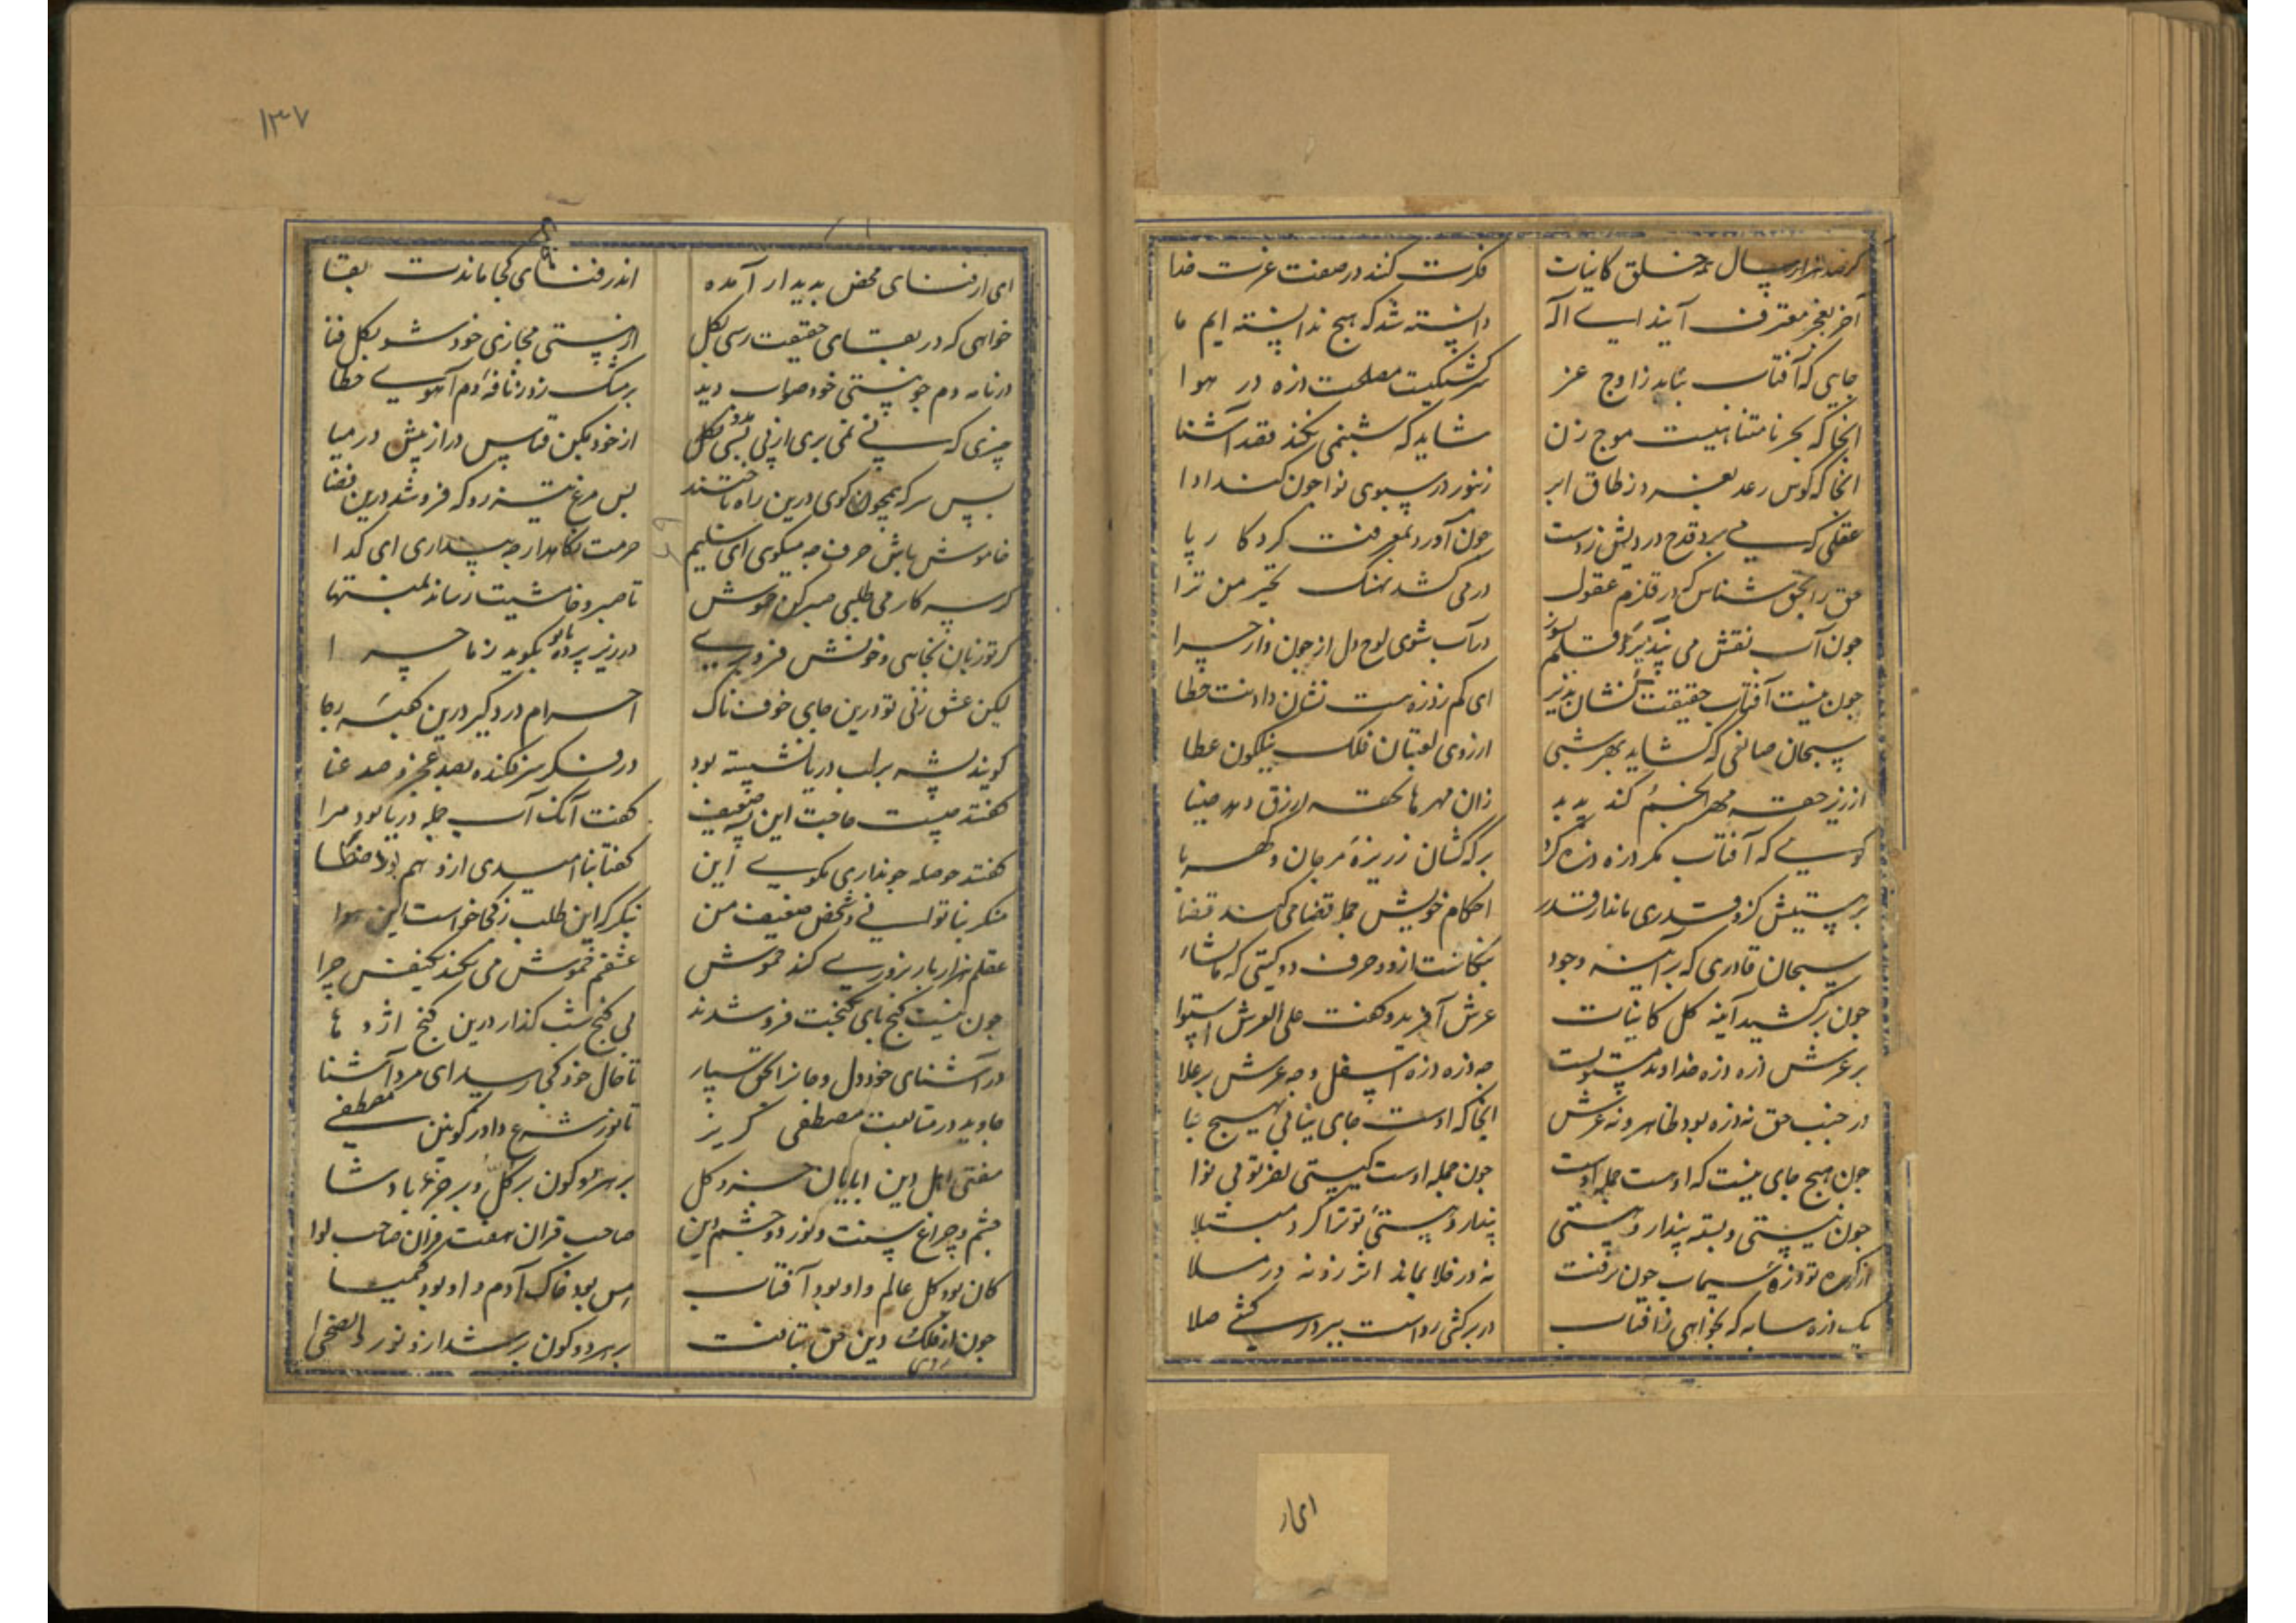 کر صد هزار سال همه خلق کاینات فکرت کنند در صفت عزت خدا
آخر بعجز معترف آیند ای اله دانسته شد که هیچ ندانسته ایم ما
جایی که آفتاب بتابد ز اوج عز سرکشتکیت مصلحت ذره در هوا
انجا که بحر نامتناهیست موج زن شاید که شبنمی نکند قصد آشنا
انجا که کوس رعد بغرد ز طاق ابر زنبور در سبوی نوا چون کند ادا
عقلی که می برد قدح دردیش ز دست چون آورد بمعرفت کردکار پا
حق را بحق شناس که در قلزم عقول در می کشد نهنک تحیر من ترا
چون آب نقش می نپذیرد قلم بسوز در آب شوی لوح دل از چون و از چرا
چون نیست آفتاب حقیقت نشان پذیر ای کم ز ذره هست نشان دادنت خطا
سبحان صانعی که کشاید بهر شبی از روی لعبتان فلک نیلکون غطا
از زیر حقه مهره انجم کند پدید زان مهره ها بحقه ازرق دهد ضیا
کوسی که آفتاب مکر ذره ذره کرد بر کهکشان ز ریزه مرجان و کهربا
بر نیستیش کز و قدری ماند از قدر احکام خویش جمله قضا می کند قضا
سبحان قادری که بر آیینه وجود بنکاشت از دو حرف دو کیتی کما یشاء
چون برکشید آینه کل کاینات عرش آفرید و کفت علی العرش استوا
بر عرش ذره ذره خداوند مستویست چه ذره ذره اسفل و چه عرش بر علا
در جنب حق نه ذره بود ظاهر و نه عرش انجا که اوست جای نیابی بهیچ جا
چون هیچ جای نیست که او نیست جمله اوست چون جمله اوست کیستی آخر تو بی نوا
چون نیستی و بسته پندار و هستی پندار و هستی تو ترا کرد مبتلا
از کوره تو ذره سیماب چون برفت نه در خلا بماند اثر زو نه در ملا
یک ذره سایه که نخواهی ز آفتاب در برکشی رواست ببر در کشی صلا
۱۳۷
ای از فنای محض پدیدار آمده اندر فنای کجا ماندت بقا
خواهی که در بقای حقیقت رسی بکل از هستی مجازی خود شو بکل فنا
در نامه دم چو هستی خود صواب دید بر مشک زد ز نافه دم آهوی خطا
چیزی که پی نمی بری از پی مرو بکل از خود مکن قیاس دراز پیش در میا
بس سر که همچو کوی درین راه باختند بس مرغ تیزرو که فرو شد درین فضا
خاموش باش حرف چه میکوی ای سلیم حرمت نکاهدار چه پنداری ای کدا
کر سر کار می طلبی صبر کن خموش تا صبر و خامشیت رساند بمنتها
کر تو زبان بخایی و خونش فرو بری در زیر پرده با تو بکوید ز ماجرا
لیکن عشق زنی تو درین جای خوفناک احرام درد کیر درین کعبه رجا
کویند پشه بر لب دریا نشسته بود در فکر سر فکنده بصد عجز و صد عنا
کفتند چیست حاجت این پشه ضعیف کفت آنک آب جمله دریا بود مرا
کفتند حوصله چو نداری مکوی این کفتا بنا امیدی ازو هم بود
منکر بناتوانی و شخص ضعیف من بنکر که این طلب ز کجا خاست این هوا
عقلم هزار بار بروزی کند خموش عشقم خموش می نکند یک نفس چرا
چون نیست کنج پای بکنجت فرو شدند بی کنج شب کذار درین کنج اژدها
در آشنای خود دل و جانرا بحق سپار تا حال خود کجا رسد ای مرد آشنا
جاوید در متابعت مصطفی کریز تا نور شرع دادر کونین مصطفی
مفتی اهل دین ابابان جزو کل بر هر دو کون بر کل و بر جزء پادشا
چشم و چراغ سنت و نور دو چشم دین صاحب قران هفت قران صاحب لوا
کان بود کل عالم و او بود آفتاب مس بود خاک آدم و او بود کیمیا
چون از فلک دین حق بتافت بر هر دو کون بر شد ازو نور والضحی
روی
ای از